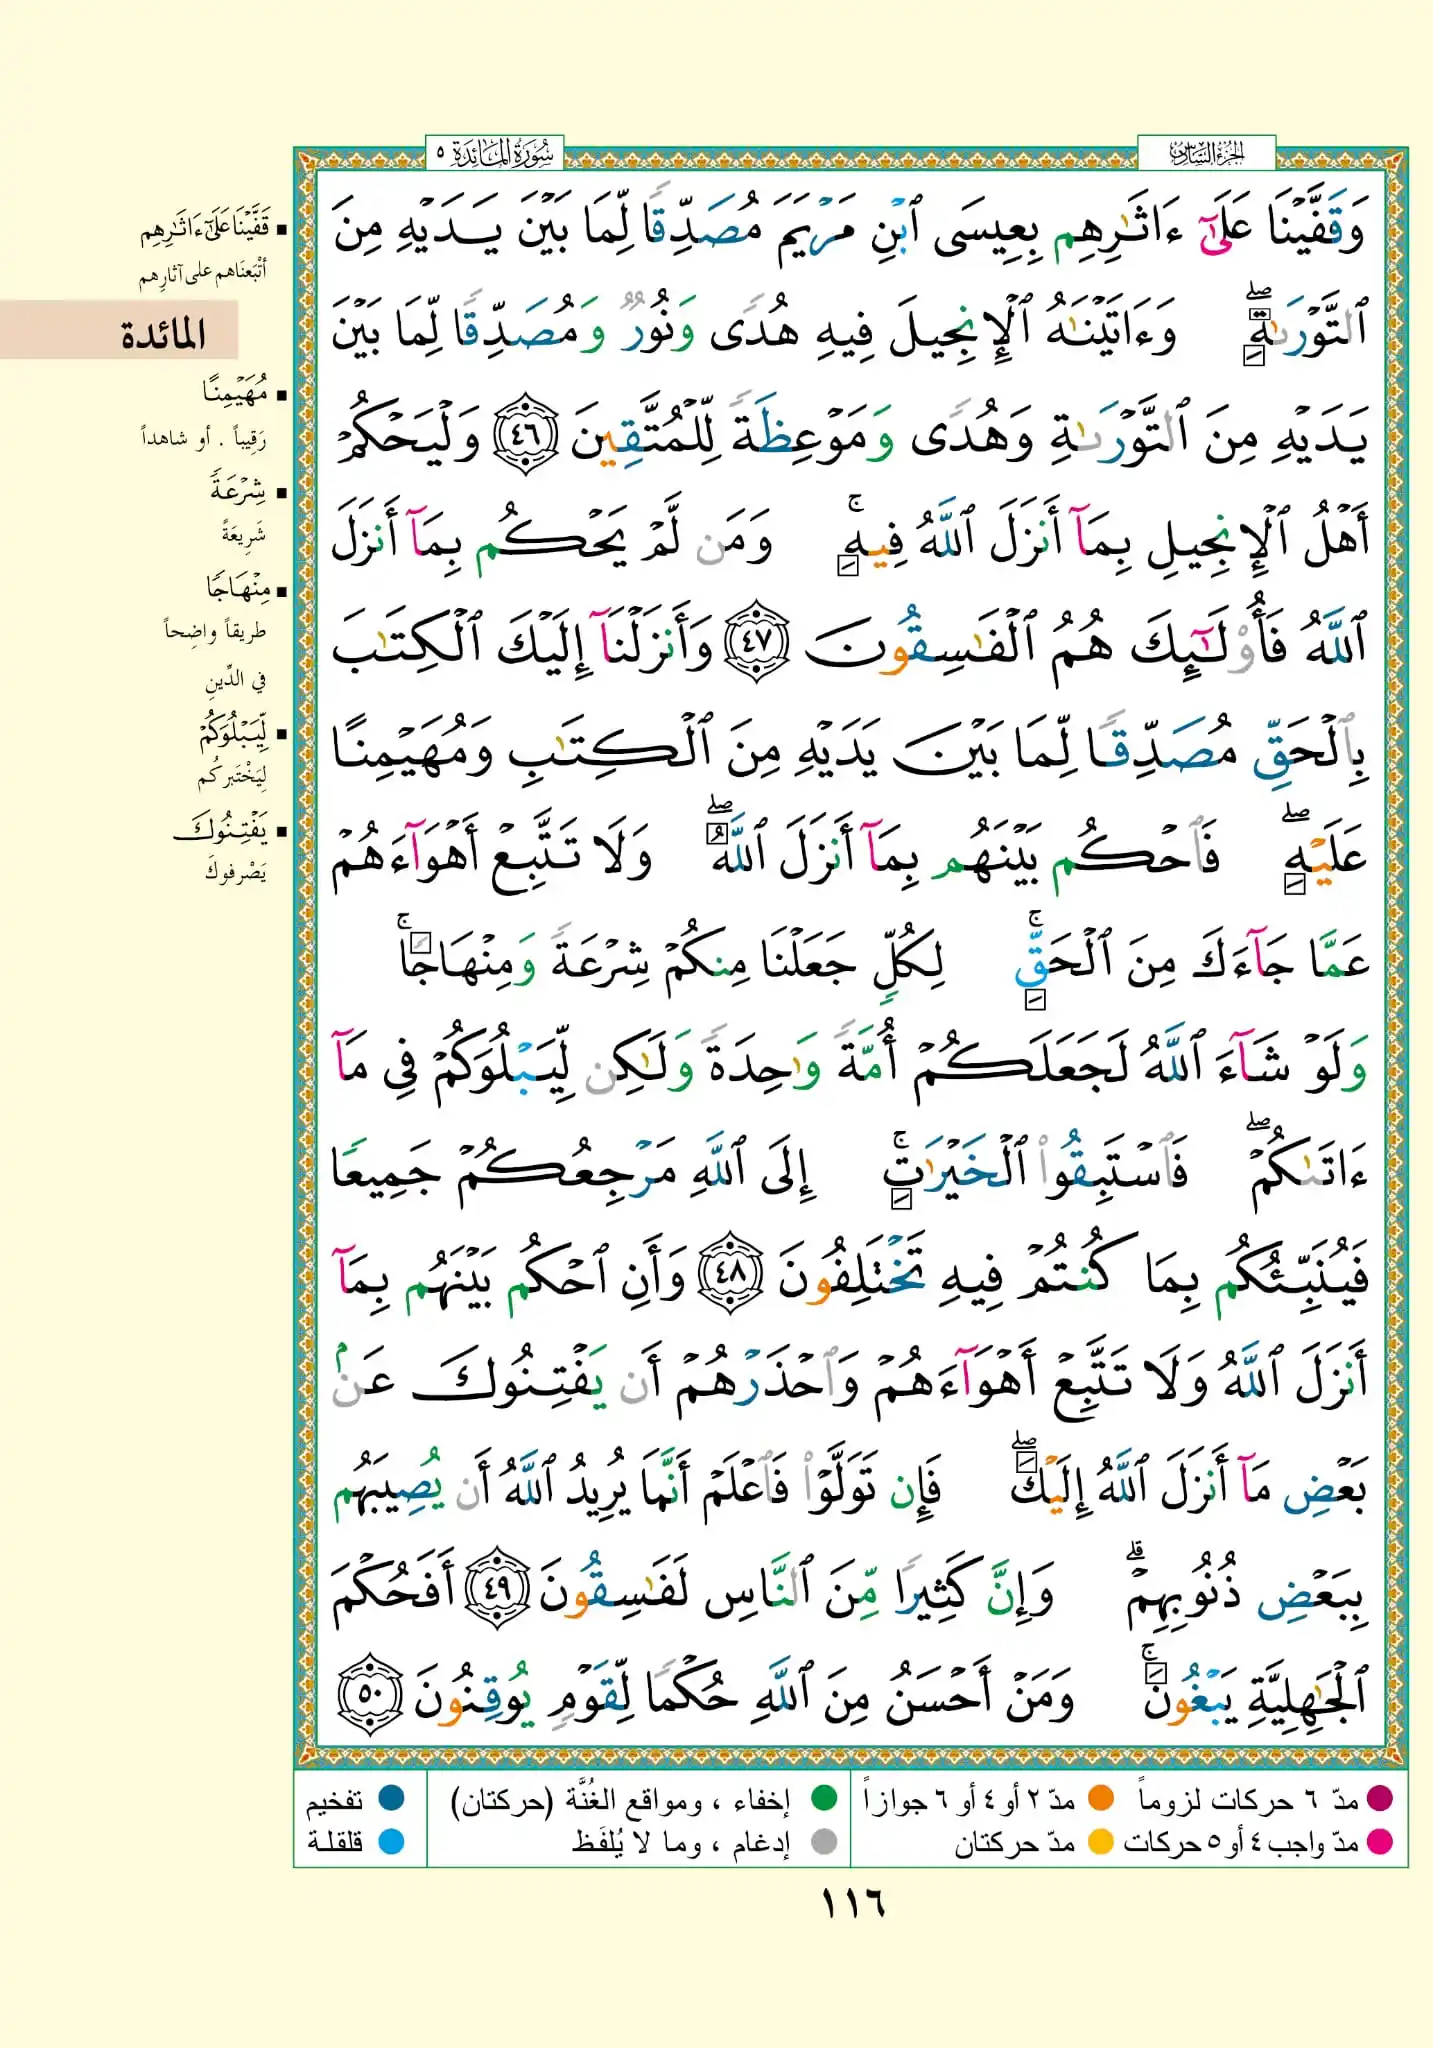 الجزء السادس
سورة المائدة ٥
وَقَفَّيْنَا عَلَىٰٓ ءَاثَـٰرِهِم بِعِيسَى ٱبْنِ مَرْيَمَ مُصَدِّقًا لِّمَا بَيْنَ يَدَيْهِ مِنَ
ٱلتَّوْرَىٰةِ ۖ وَءَاتَيْنَـٰهُ ٱلْإِنجِيلَ فِيهِ هُدًى وَنُورٌ وَمُصَدِّقًا لِّمَا بَيْنَ
يَدَيْهِ مِنَ ٱلتَّوْرَىٰةِ وَهُدًى وَمَوْعِظَةً لِّلْمُتَّقِينَ ٤٦ وَلْيَحْكُمْ
أَهْلُ ٱلْإِنجِيلِ بِمَآ أَنزَلَ ٱللَّهُ فِيهِ ۚ وَمَن لَّمْ يَحْكُم بِمَآ أَنزَلَ
ٱللَّهُ فَأُو۟لَـٰٓئِكَ هُمُ ٱلْفَـٰسِقُونَ ٤٧ وَأَنزَلْنَآ إِلَيْكَ ٱلْكِتَـٰبَ
بِٱلْحَقِّ مُصَدِّقًا لِّمَا بَيْنَ يَدَيْهِ مِنَ ٱلْكِتَـٰبِ وَمُهَيْمِنًا
عَلَيْهِ ۖ فَٱحْكُم بَيْنَهُم بِمَآ أَنزَلَ ٱللَّهُ ۖ وَلَا تَتَّبِعْ أَهْوَآءَهُمْ
عَمَّا جَآءَكَ مِنَ ٱلْحَقِّ ۚ لِكُلٍّ جَعَلْنَا مِنكُمْ شِرْعَةً وَمِنْهَاجًا ۚ
وَلَوْ شَآءَ ٱللَّهُ لَجَعَلَكُمْ أُمَّةً وَٰحِدَةً وَلَـٰكِن لِّيَبْلُوَكُمْ فِى مَآ
ءَاتَىٰكُمْ ۖ فَٱسْتَبِقُوا۟ ٱلْخَيْرَٰتِ ۚ إِلَى ٱللَّهِ مَرْجِعُكُمْ جَمِيعًا
فَيُنَبِّئُكُم بِمَا كُنتُمْ فِيهِ تَخْتَلِفُونَ ٤٨ وَأَنِ ٱحْكُم بَيْنَهُم بِمَآ
أَنزَلَ ٱللَّهُ وَلَا تَتَّبِعْ أَهْوَآءَهُمْ وَٱحْذَرْهُمْ أَن يَفْتِنُوكَ عَنۢ
بَعْضِ مَآ أَنزَلَ ٱللَّهُ إِلَيْكَ ۖ فَإِن تَوَلَّوْا۟ فَٱعْلَمْ أَنَّمَا يُرِيدُ ٱللَّهُ أَن يُصِيبَهُم
بِبَعْضِ ذُنُوبِهِمْ ۗ وَإِنَّ كَثِيرًا مِّنَ ٱلنَّاسِ لَفَـٰسِقُونَ ٤٩ أَفَحُكْمَ
ٱلْجَـٰهِلِيَّةِ يَبْغُونَ ۚ وَمَنْ أَحْسَنُ مِنَ ٱللَّهِ حُكْمًا لِّقَوْمٍ يُوقِنُونَ ٥٠
▪ قَفَّيْنَا عَلَىٰٓ ءَاثَـٰرِهِم
أَتْبَعنَاهم على آثارِهم
المائدة
▪ مُهَيْمِنًا
رَقِيباً . أو شاهداً
▪ شِرْعَةً
شَرِيعَةً
▪ مِنْهَاجًا
طريقاً واضِحاً
في الدِّينِ
▪ لِّيَبْلُوَكُمْ
لِيَخْتَبركُم
▪ يَفْتِنُوكَ
يَصْرفوكَ
مدّ ٦ حركات لزوماً مدّ ٢ أو ٤ أو ٦ جوازاً إخفاء ، ومواقع الغُنَّة (حركتان) تفخيم
مدّ واجب ٤ أو ٥ حركات مدّ حركتان إدغام ، وما لا يُلفَظ قلقلة
١١٦